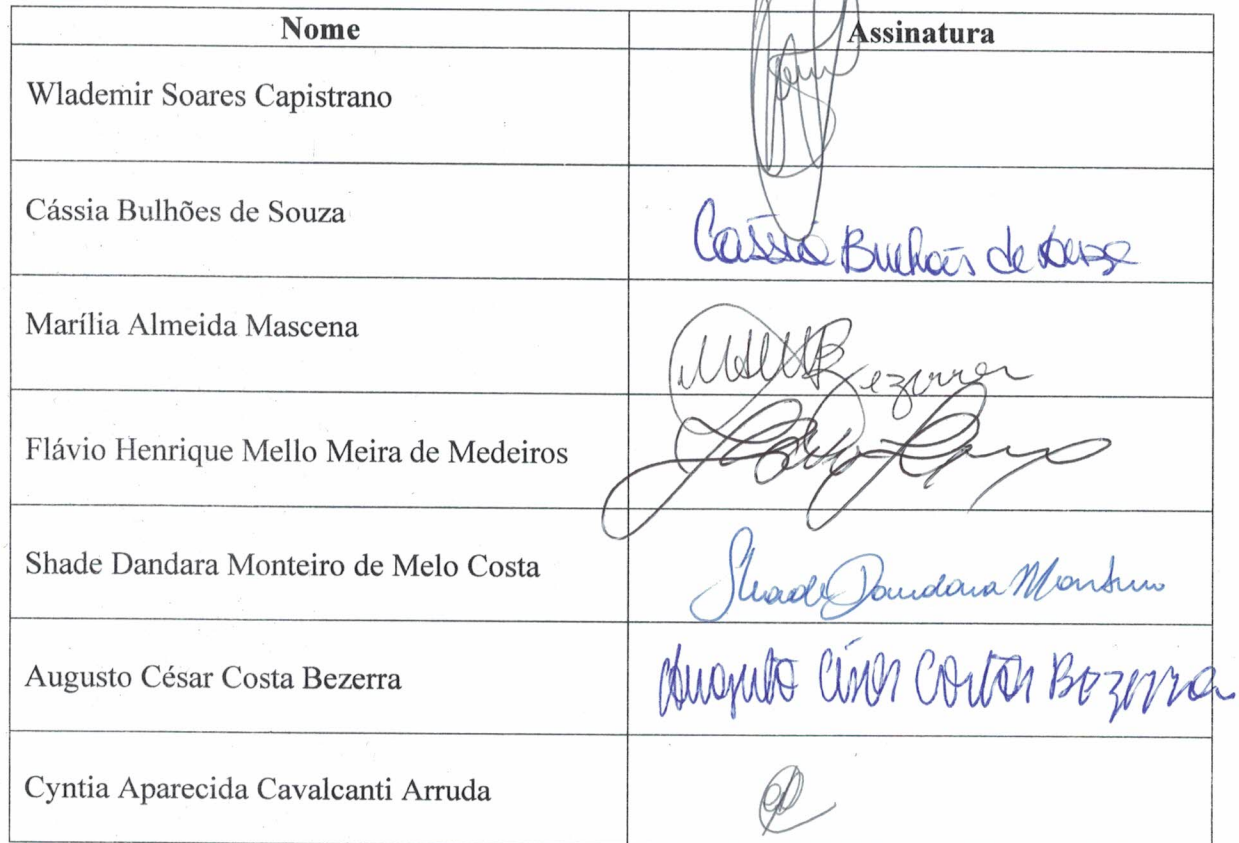 Nome Assinatura
Wlademir Soares Capistrano
Cássia Bulhões de Souza
Cássia Bulhões de Souza
Marília Almeida Mascena
Bezerra
Flávio Henrique Mello Meira de Medeiros
Shade Dandara Monteiro de Melo Costa
Shade Dandara Monteiro
Augusto César Costa Bezerra
Augusto César Costa Bezerra
Cyntia Aparecida Cavalcanti Arruda